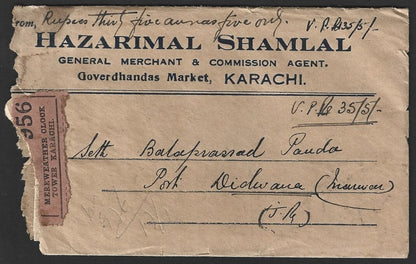 From, Rupees thirty five annas five only. V.P. Rs 35/5/-
HAZARIMAL SHAMLAL
GENERAL MERCHANT & COMMISSION AGENT.
Goverdhandas Market, KARACHI.
V.P. Rs 35/5/-
956
MEREWEATHER CLOCK
TOWER KARACHI.
Seth Balaprassad Panda
Post Didwana (Marwar)